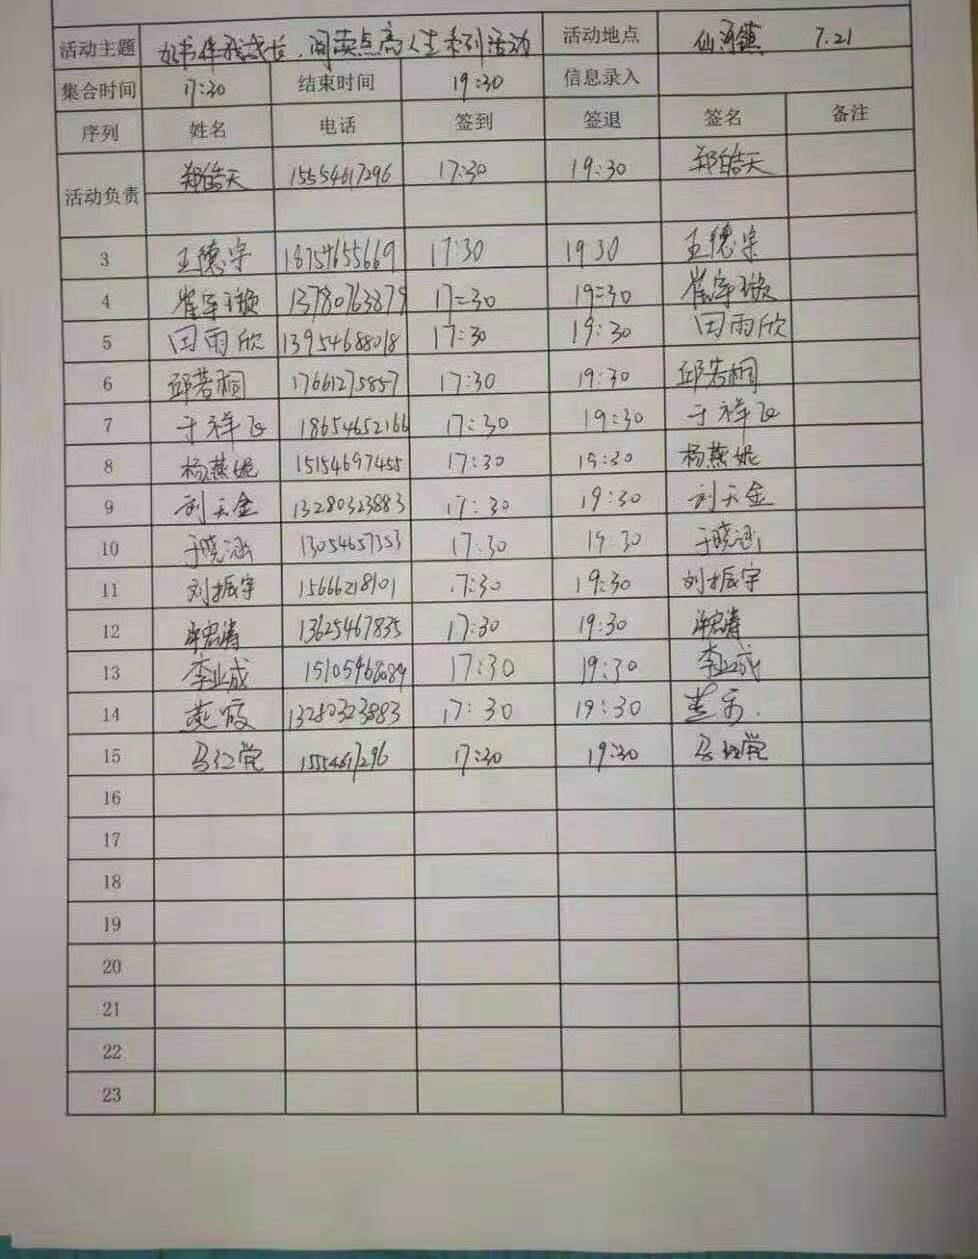 活动主题 好书伴我成长、阅读点亮人生系列活动 活动地点 仙河镇 7.21
集合时间 17:30 结束时间 19:30 信息录入
序列 姓名 电话 签到 签退 签名 备注
活动负责 郑皓天 15554617296 17:30 19:30 郑皓天
3 王德宇 18754655669 17:30 19:30 王德宇
4 崔宇璇 13780763879 17:30 19:30 崔宇璇
5 田雨欣 13954688018 17:30 19:30 田雨欣
6 邱若桐 17661275857 17:30 19:30 邱若桐
7 于祥飞 18654652166 17:30 19:30 于祥飞
8 杨燕妮 15154697455 17:30 19:30 杨燕妮
9 刘天金 13280323883 17:30 19:30 刘天金
10 于晓涵 13054657353 17:30 19:30 于晓涵
11 刘振宇 15666218101 7:30 19:30 刘振宇
12 13625467835 17:30 19:30
13 李业成 17:30 19:30 李业成
14 13280323883 17:30 19:30
15 马红党 1554617296 17:30 19:30 马红党
16
17
18
19
20
21
22
23